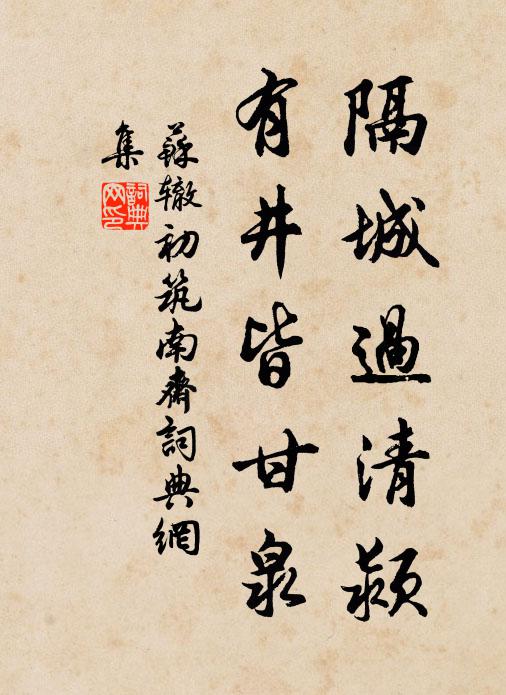 隔城過清潁
有井皆甘泉
蘇辙初筑南齋詞典網
集
詞典
网印